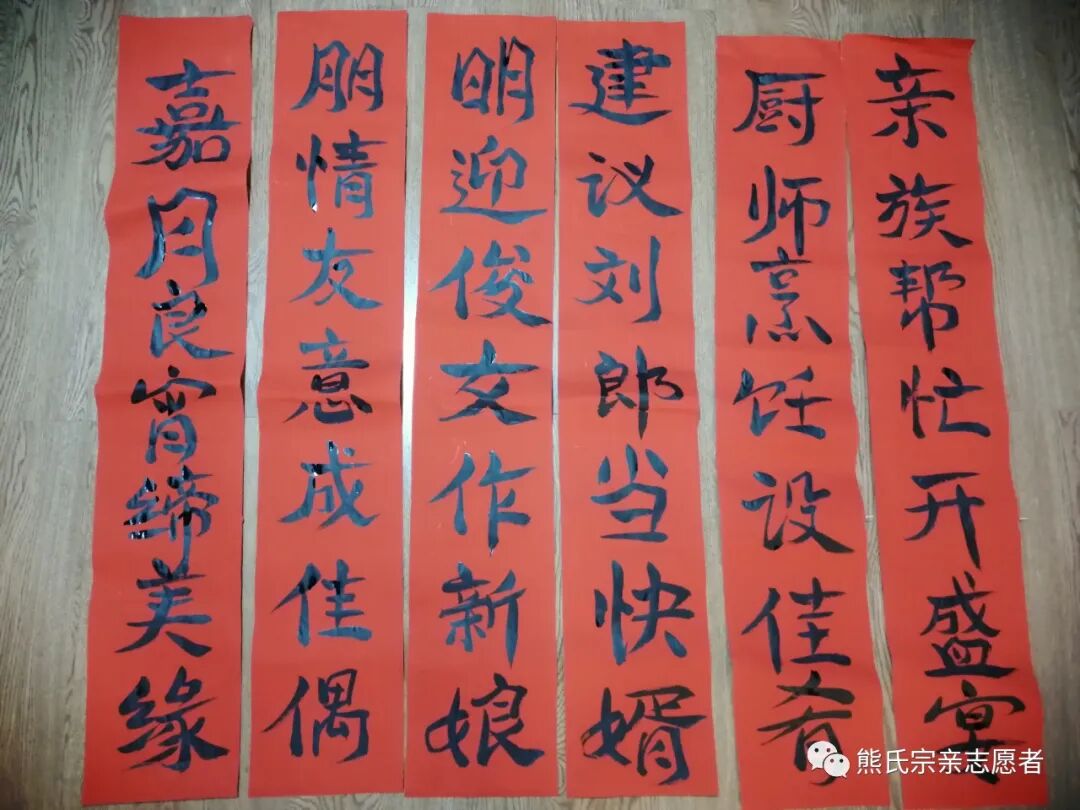 亲族帮忙开盛宴
厨师烹饪设佳肴
建议刘郎当快婿
明迎俊文作新娘
朋情友意成佳偶
嘉月良宵缔美缘
熊氏宗亲志愿者